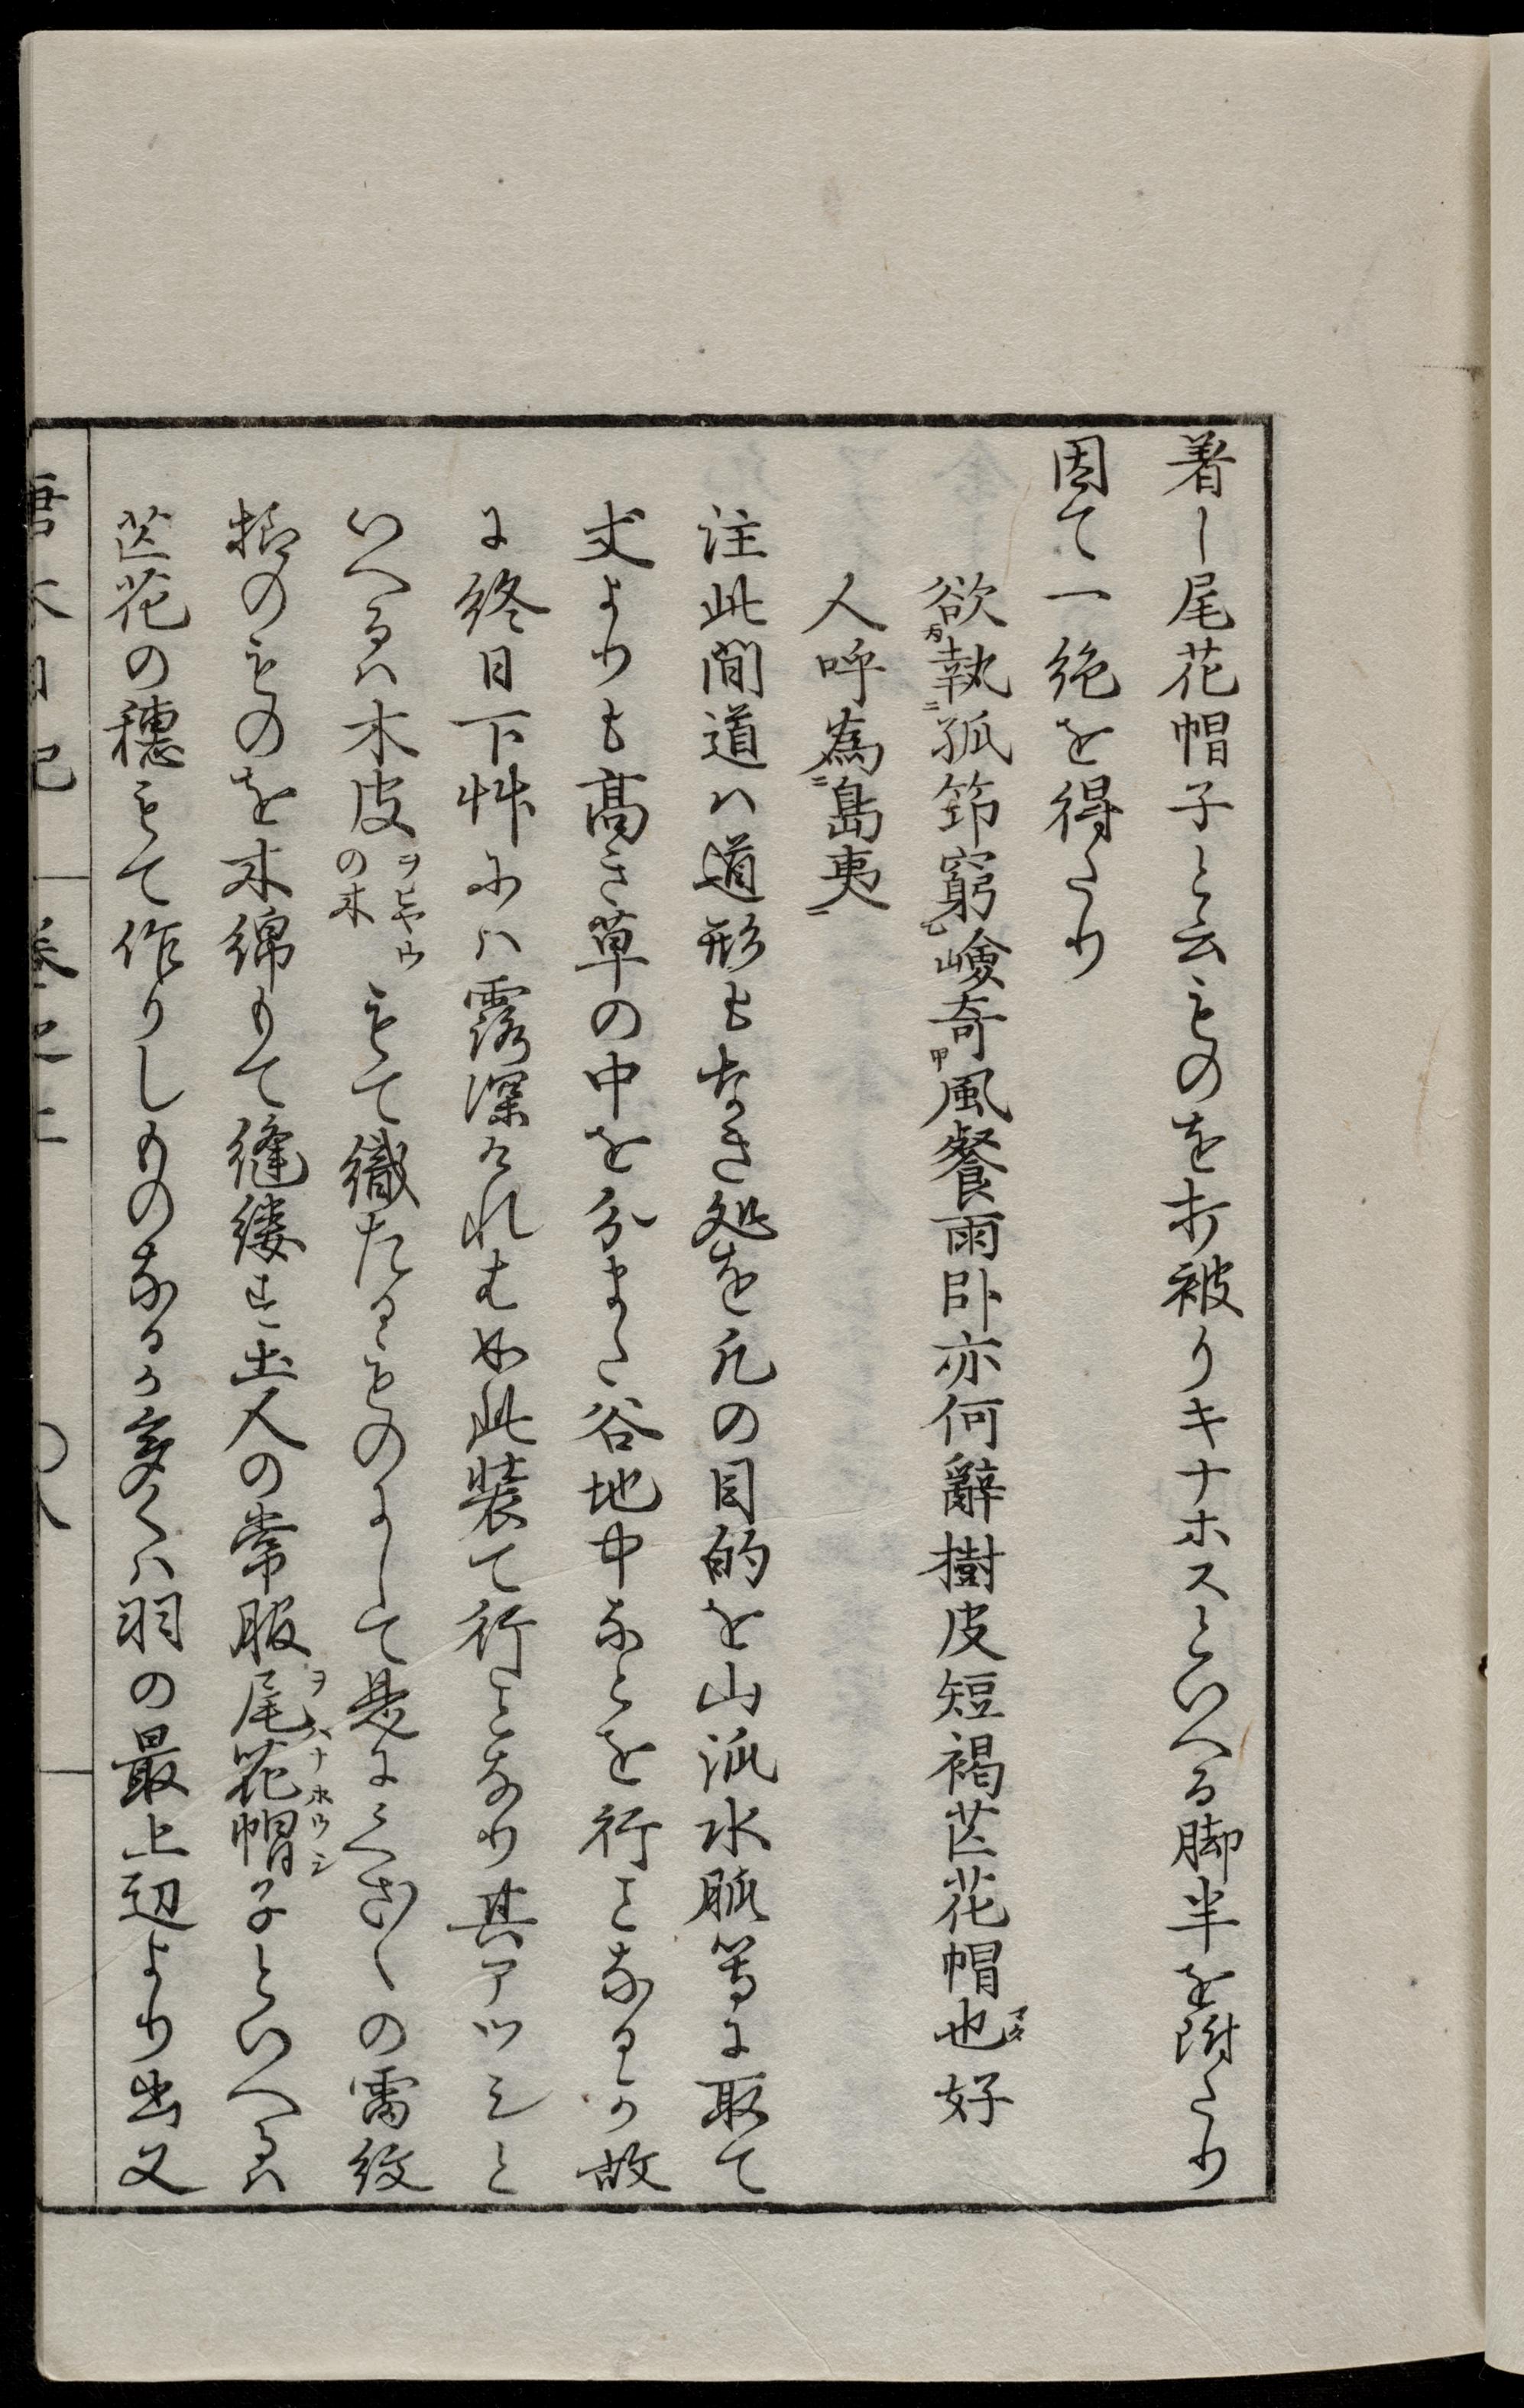 着し尾花帽子と云ものを打被りキナホスといへる脚半を附たり
因て一絶を得たり
欲執孤筇窮嶮奇風餐雨卧亦何辭樹皮短褐芒花帽也好
人呼為島夷
注此間道ハ道形もなき処を凡の目的を山泒水脈等に取て
丈よりも高き草の中を分また谷地中なとを行ことなるか故
に終日下艸にハ露深けれは如此装て行ことなり其アツシと
いへるハ木皮ヲヒヤウの木もて織たるものにして是にくさ〳〵の雷紋
様のものを木綿もて縫縷す土人の常服尾花帽子といへるハ
芒花の穗もて作りしものなるか多くハ羽の最上辺より出又